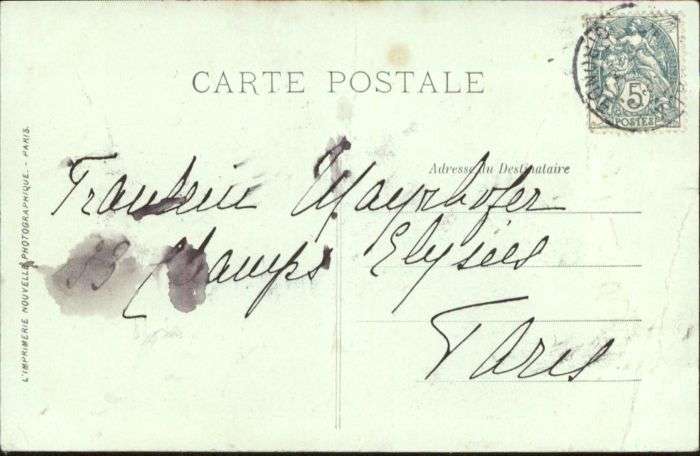 CARTE POSTALE
5c
POSTES
Adresse du Destinataire
Fraulein Mayrhofer
33 Champs Elysées
Paris
L'IMPRIMERIE NOUVELLE PHOTOGRAPHIQUE - PARIS.